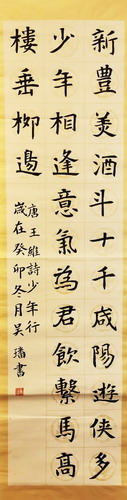 新豐美酒斗十千咸陽遊俠多
少年相逢意氣為君飲繫馬高
樓垂柳邊
唐王維詩少年行
歲在癸卯冬月吳璠書